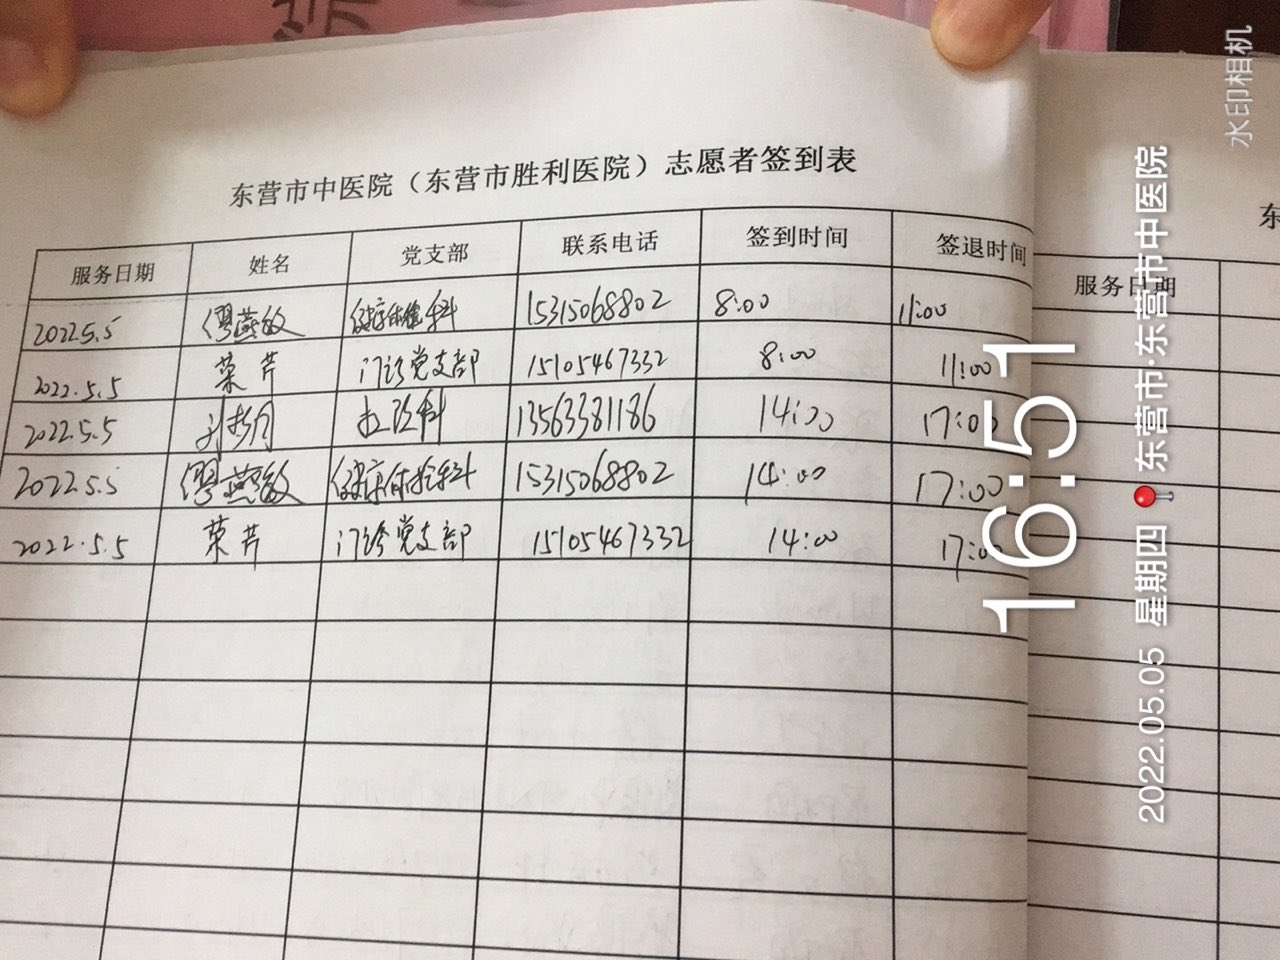 东营市中医院（东营市胜利医院）志愿者签到表
服务日期 姓名 党支部 联系电话 签到时间 签退时间
2022.5.5 缪燕敏 健康体检科 15315068802 8:00 11:00
2022.5.5 荣芹 门诊党支部 15105467332 8:00 11:00
2022.5.5 13563381186 14:00 17:00
2022.5.5 缪燕敏 健康体检科 15315068802 14:00 17:00
2022.5.5 荣芹 门诊党支部 15105467332 14:00 17:00
服务日期
东
16:51
2022.05.05 星期四 东营市·东营市中医院
水印相机